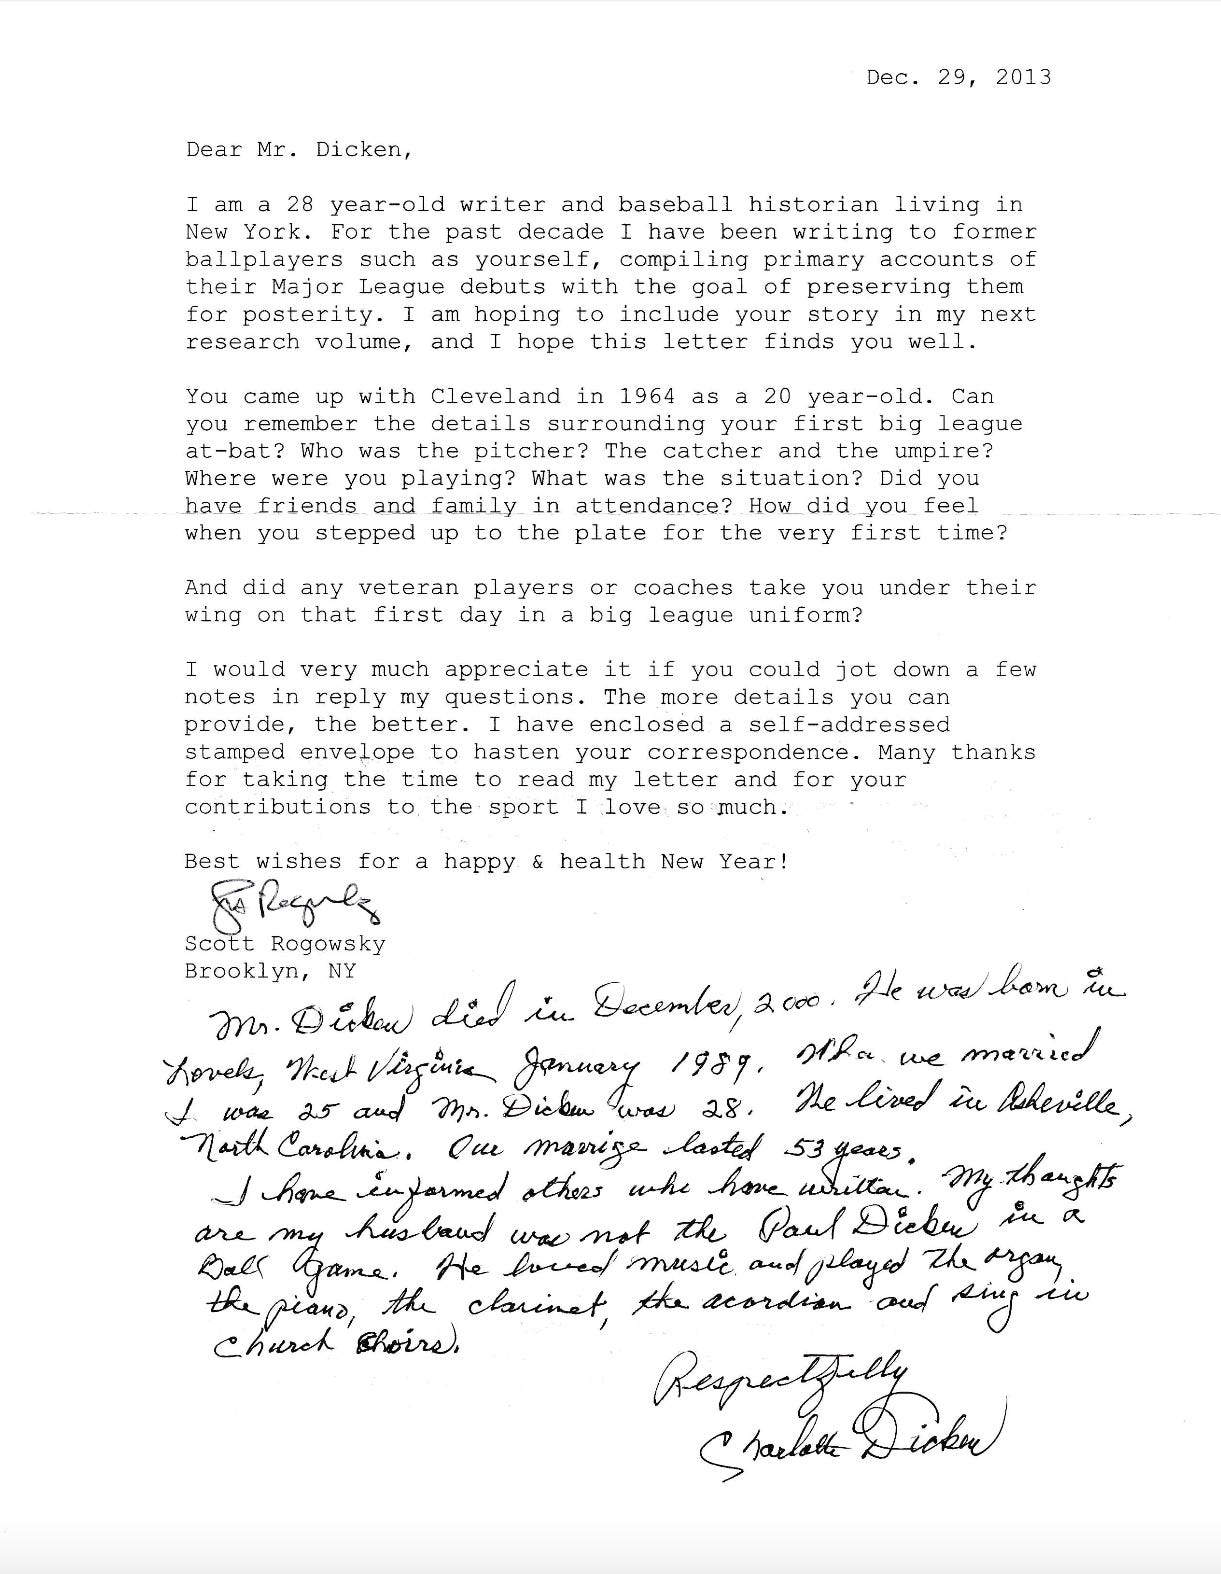 Dec. 29, 2013
Dear Mr. Dicken,
I am a 28 year-old writer and baseball historian living in
New York. For the past decade I have been writing to former
ballplayers such as yourself, compiling primary accounts of
their Major League debuts with the goal of preserving them
for posterity. I am hoping to include your story in my next
research volume, and I hope this letter finds you well.
You came up with Cleveland in 1964 as a 20 year-old. Can
you remember the details surrounding your first big league
at-bat? Who was the pitcher? The catcher and the umpire?
Where were you playing? What was the situation? Did you
have friends and family in attendance? How did you feel
when you stepped up to the plate for the very first time?
And did any veteran players or coaches take you under their
wing on that first day in a big league uniform?
I would very much appreciate it if you could jot down a few
notes in reply my questions. The more details you can
provide, the better. I have enclosed a self-addressed
stamped envelope to hasten your correspondence. Many thanks
for taking the time to read my letter and for your
contributions to the sport I love so much.
Best wishes for a happy & health New Year!
Scott Rogowsky
Brooklyn, NY
Mr. Dicken died in December, 2000. He was born in
West Virginia January 1989. we married
I was 25 and Mr. Dicken was 28. He lived in Asheville,
North Carolina. Our marrige lasted 53 years.
I have informed others who have written. My thoughts
are my husband was not the Paul Dicken in a
Ball Game. He loved music and played the organ,
the piano, the clarinet, the acordian and sing in
Church Choirs.
Respectfully
Charlotte Dicken